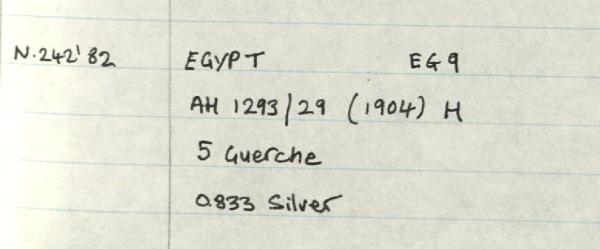 N.242'82 EGYPT EG9
AH 1293/29 (1904) H
5 Guerche
0.833 Silver